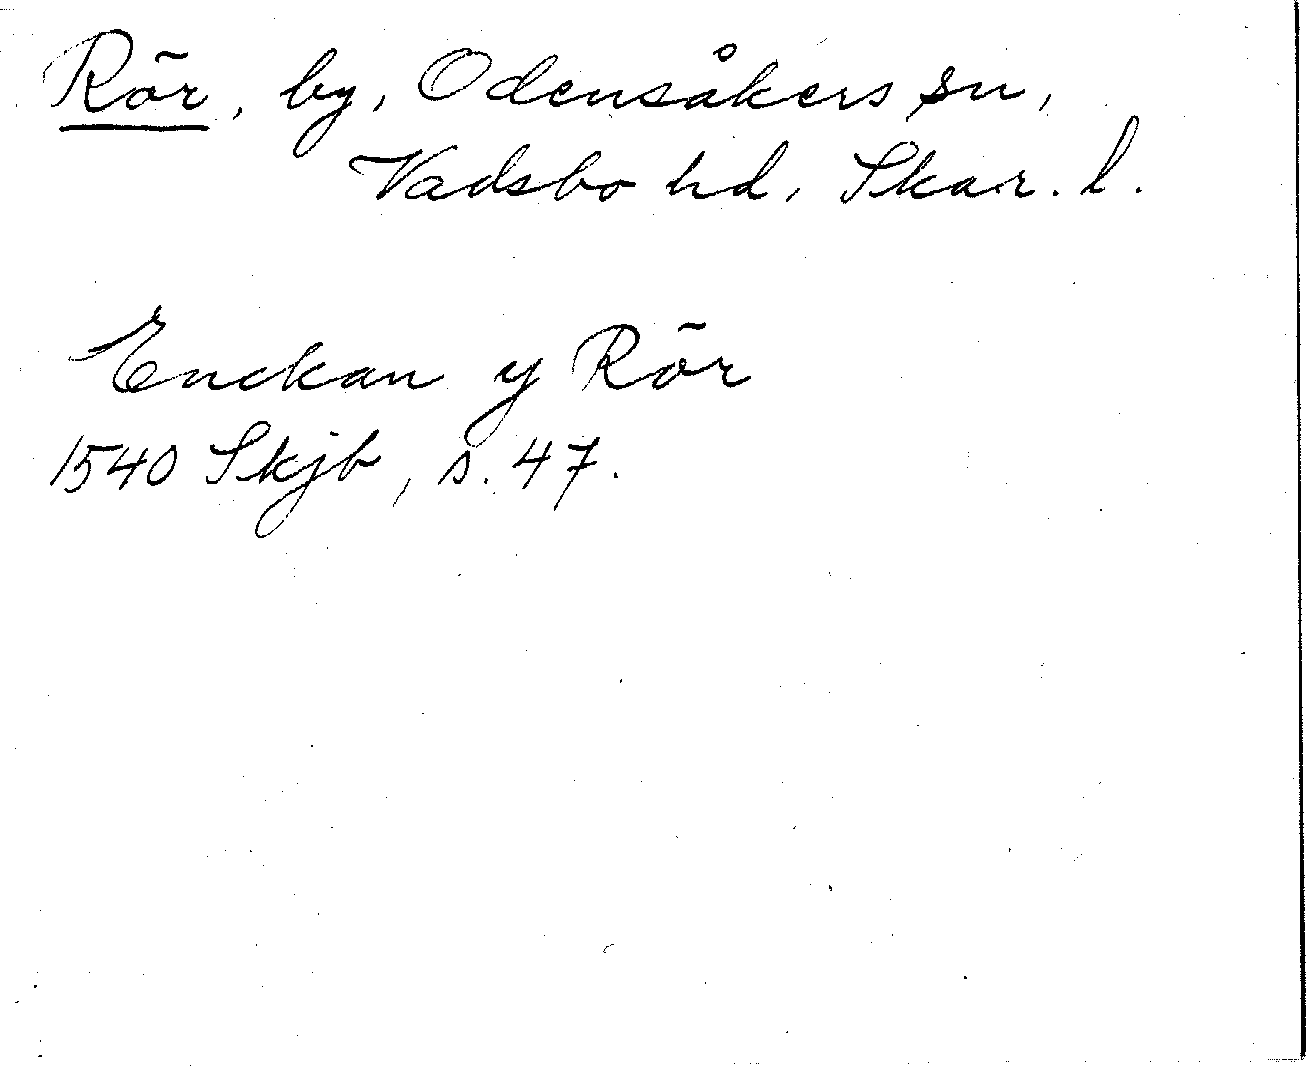 Rör, by, Odensåkers sn,
Vadsbo hd, Skar. l.
Enckan y Rör
1540 Skjb, s. 47.